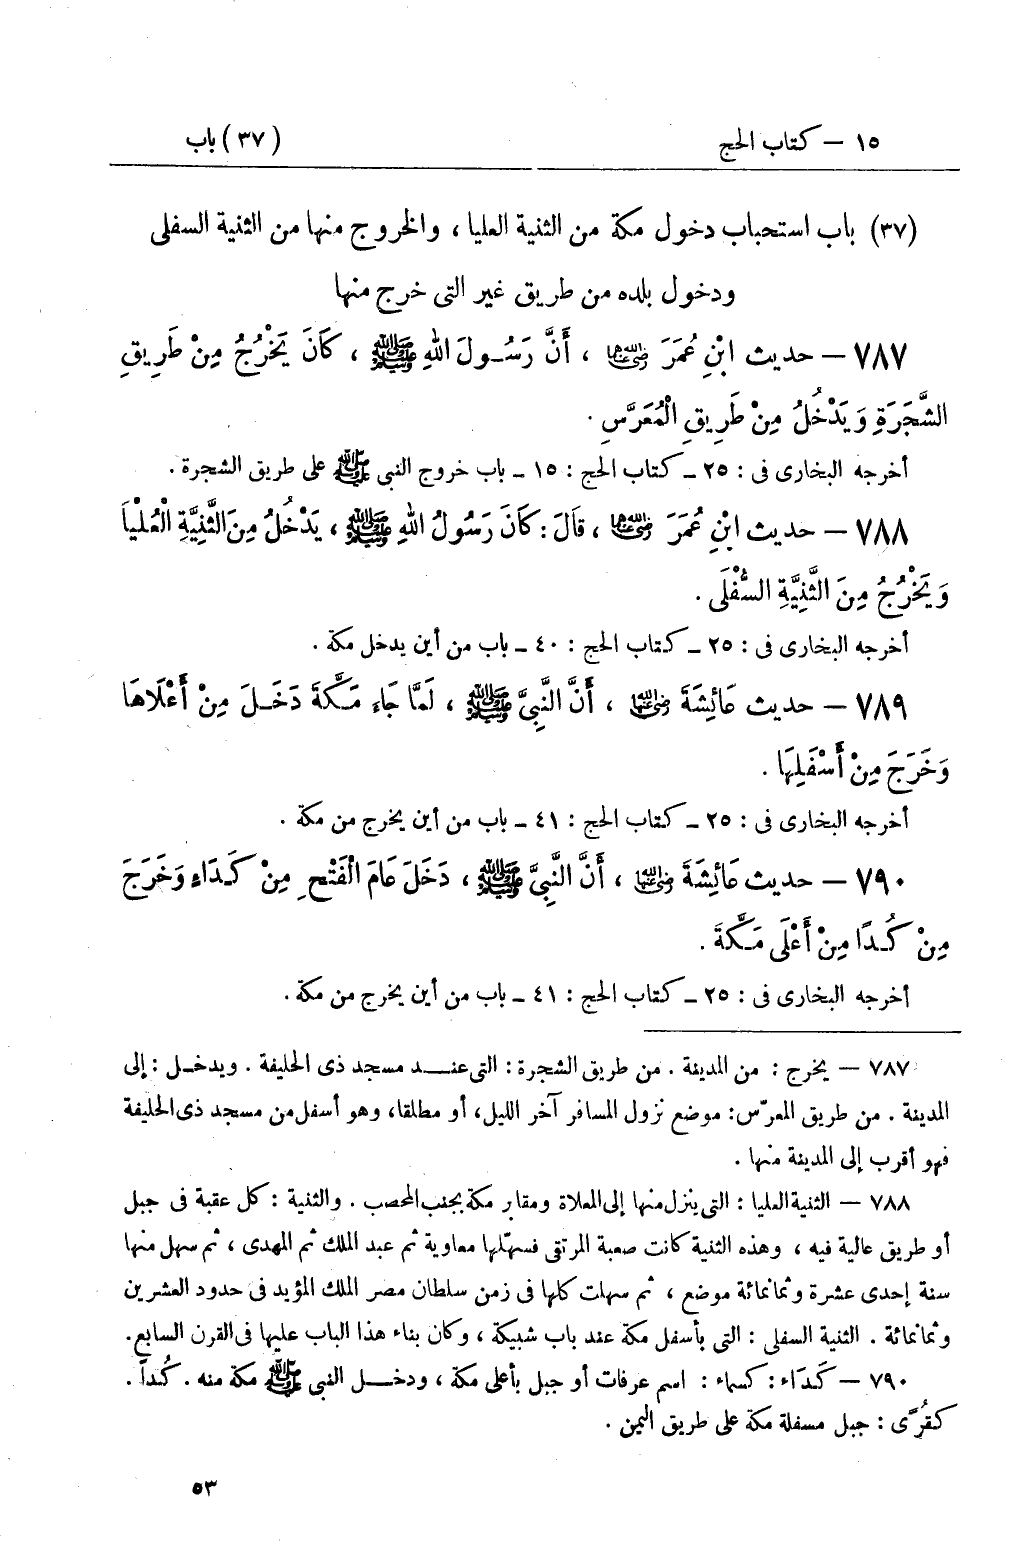 ١٥ – كتاب الحج (٣٧) باب
(٣٧) باب استحباب دخول مكة من الثنية العليا ، والخروج منها من الثنية السفلى
ودخول بلده من طريق غير التى خرج منها
٧٨٧ – حديث ابْنِ عُمَرَ رضي الله عنهما ، أَنَّ رَسُولَ اللهِ ﷺ ، كَانَ يَخْرُجُ مِنْ طَرِيقِ
الشَّجَرَةِ وَيَدْخُلُ مِنْ طَرِيقِ الْمُعَرَّسِ .
أخرجه البخارى فى : ٢٥ – كتاب الحج : ١٥ – باب خروج النبى ﷺ على طريق الشجرة .
٧٨٨ – حديث ابْنِ عُمَرَ رضي الله عنهما ، قَالَ : كَانَ رَسُولُ اللهِ ﷺ ، يَدْخُلُ مِنَ الثَّنِيَّةِ الْعُلْيَا
وَيَخْرُجُ مِنَ الثَّنِيَّةِ السُّفْلَى .
أخرجه البخارى فى : ٢٥ – كتاب الحج : ٤٠ – باب من أين يدخل مكة .
٧٨٩ – حديث عَائِشَةَ رضي الله عنها ، أَنَّ النَّبِيَّ ﷺ ، لَمَّا جَاءَ مَكَّةَ دَخَلَ مِنْ أَعْلَاهَا
وَخَرَجَ مِنْ أَسْفَلِهَا .
أخرجه البخارى فى : ٢٥ – كتاب الحج : ٤١ – باب من أين يخرج من مكة .
٧٩٠ – حديث عَائِشَةَ رضي الله عنها ، أَنَّ النَّبِيَّ ﷺ ، دَخَلَ عَامَ الْفَتْحِ مِنْ كَدَاءٍ وَخَرَجَ
مِنْ كُدًا مِنْ أَعْلَى مَكَّةَ .
أخرجه البخارى فى : ٢٥ – كتاب الحج : ٤١ – باب من أين يخرج من مكة .
٧٨٧ – يخرج : من المدينة . من طريق الشجرة : التى عند مسجد ذى الحليفة . ويدخل : إلى
المدينة . من طريق المعرّس : موضع نزول المسافر آخر الليل، أو مطلقا، وهو أسفل من مسجد ذى الحليفة
فهو أقرب إلى المدينة منها .
٧٨٨ – الثنية العليا : التى ينزل منها إلى المعلاة ومقابر مكة بجنب المحصب . والثنية : كل عقبة فى جبل
أو طريق عالية فيه ، وهذه الثنية كانت صعبة المرتقى فسهّلها معاوية ثم عبد الملك ثم المهدى ، ثم سهل منها
سنة إحدى عشرة وثمانمائة موضع ، ثم سهلت كلها فى زمن سلطان مصر الملك المؤيد فى حدود العشرين
وثمانمائة . الثنية السفلى : التى بأسفل مكة عند باب شبيكة ، وكان بناء هذا الباب عليها فى القرن السابع.
٧٩٠ – كَدَاء : كسماء : اسم عرفات أو جبل بأعلى مكة ، ودخل النبى ﷺ مكة منه . كُداً .
كقُرًى : جبل مسفلة مكة على طريق اليمن .
٥٣